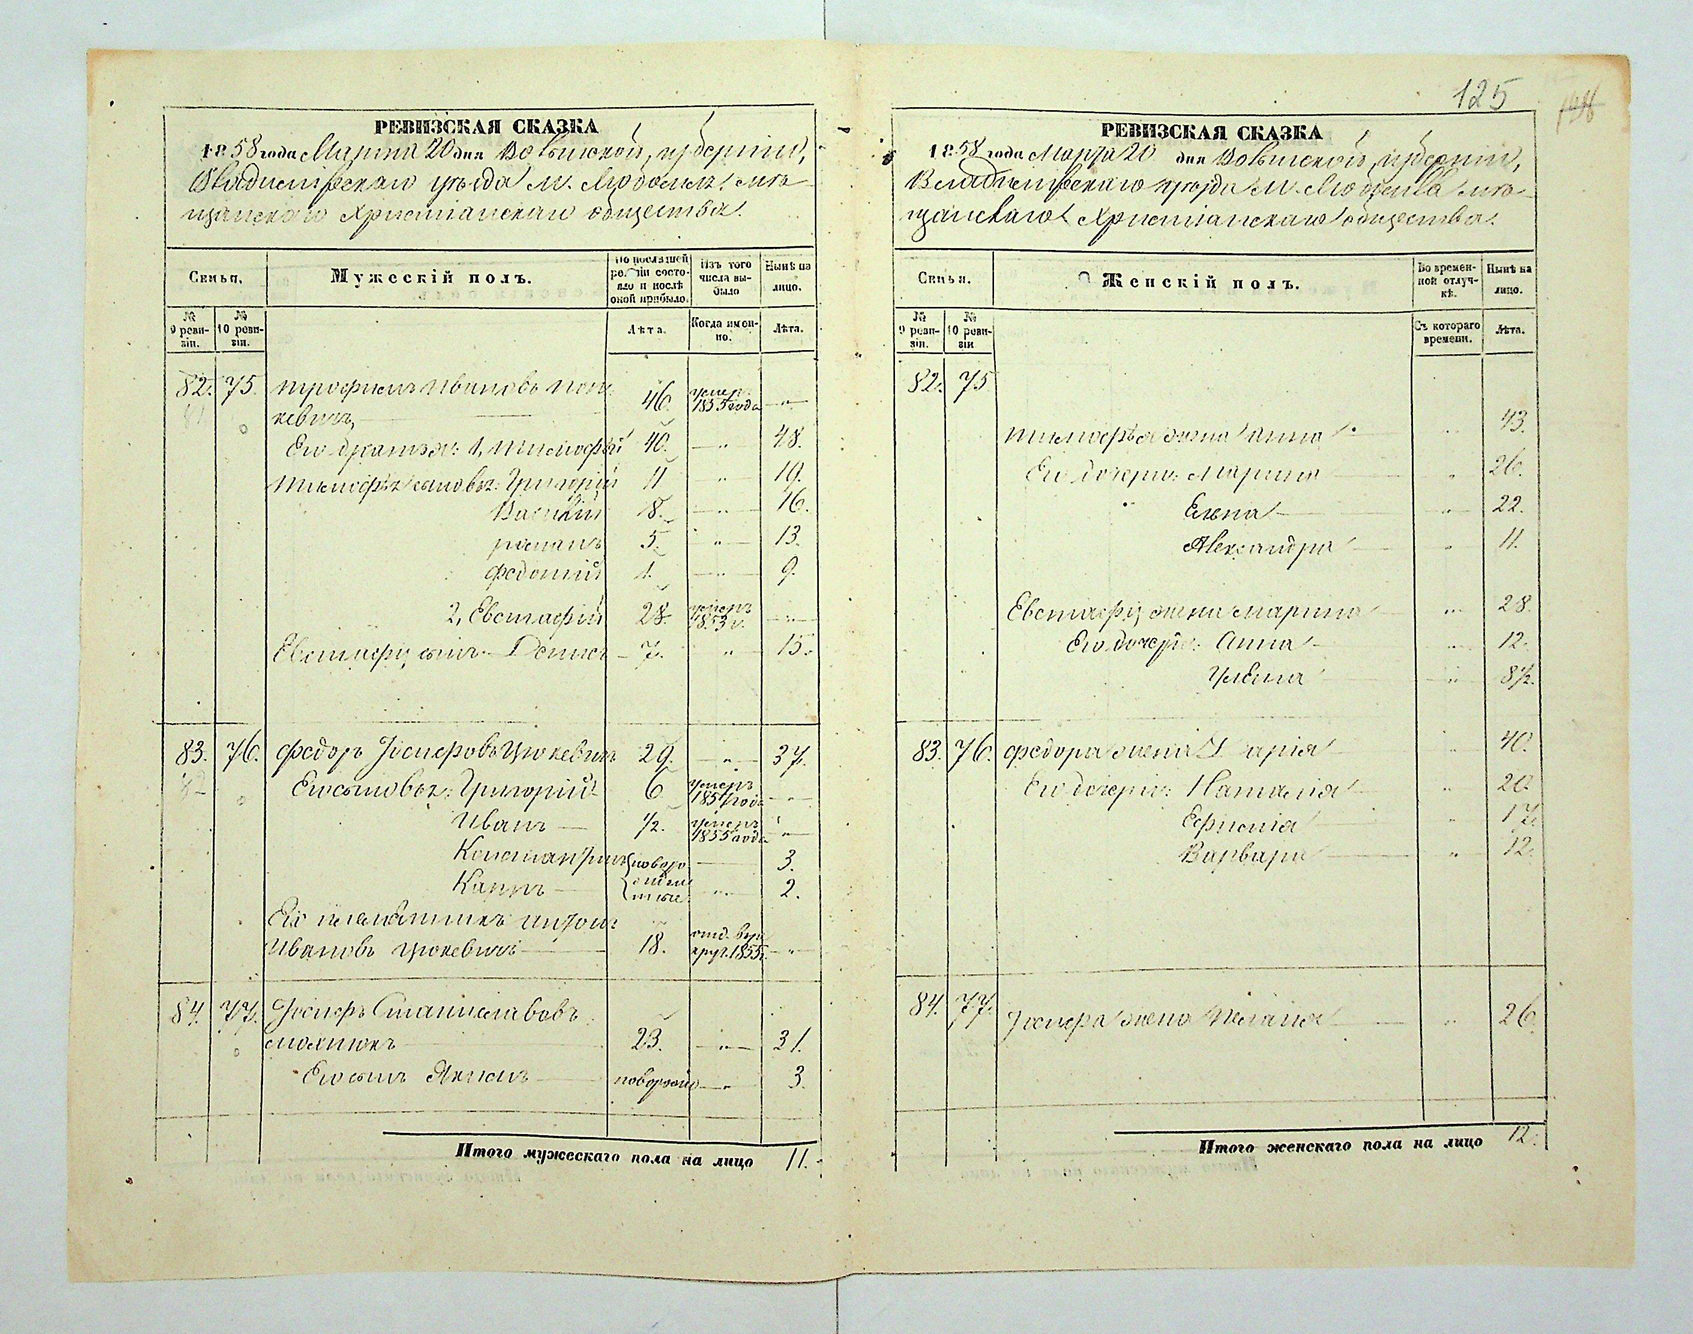 125
РЕВИЗСКАЯ СКАЗКА
1858 года Марта 20 дня Волынской губерніи,
Владимірскаго уѣзда м. Любомля мѣ-
щанскаго Христіанскаго общества.
Семья.
Мужескій полъ.
По послѣдней ревизіи состояло и послѣ оной прибыло.
Изъ того числа выбыло
Нынѣ на лицо.
№ 9 ревизіи.
№ 10 ревизіи.
Лѣта.
Когда именно.
Лѣта.
82. 75. Трофимъ Ивановъ 46. умеръ 1855 года "
Его братья: 1, Тимофѣй 40. " 48.
Тимофѣя сыновья: Григорій 11 " 19.
Василій 8. " 16.
Романъ 5. " 13.
Федотій 1. " 9.
2, Евстафій 28. умеръ 1853 г. "
Евстафія сынъ Денисъ 7. " 15.
83. 76. Федоръ Іосифовъ Цюкевичъ 29. " 37.
Его сыновья: Григорій 6 умеръ года "
Иванъ 1/2. умеръ 1855 года "
Константинъ новоро 3.
Карпъ " 2.
Его племянникъ Антонъ
Ивановъ Цюкевичъ 18. отд. 1855 "
84. 77. Іосифъ Станиславовъ
23. " 31.
Его сынъ Якимъ новорожд " 3.
Итого мужескаго пола на лицо 11.
РЕВИЗСКАЯ СКАЗКА
1858 года Марта 20 дня Волынской губерніи,
Владимірскаго уѣзда м. Любомля мѣ-
щанскаго Христіанскаго общества.
Семья.
Женскій полъ.
Во временной отлучкѣ.
Нынѣ на лицо.
№ 9 ревизіи.
№ 10 ревизіи
Съ котораго времени.
Лѣта.
82. 75
Тимофѣя жена Анна " 43.
Его дочери: Марина " 26.
Елена " 22.
Александра " 11.
Евстафія жена Марина " 28.
Его дочери: Анна " 12.
Ульяна " 8 1/2.
83. 76. Федора жена Дарія " 40.
Его дочери: Наталія " 20.
Ефимія " 17.
Варвара " 12.
84. 77. Іосифа жена Меланія " 26.
Итого женскаго пола на лицо 12.